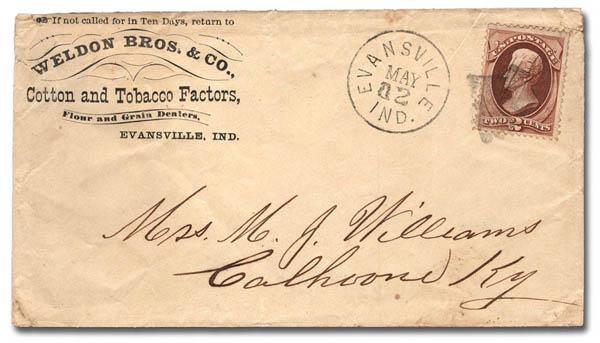 If not called for in Ten Days, return to
WELDON BROS. & CO.,
Cotton and Tobacco Factors,
Flour and Grain Dealers,
EVANSVILLE, IND.
EVANSVILLE
MAY
12
IND.
U.S. POSTAGE
TWO 2 CENTS
Mrs. M. J. Williams
Calhoone Ky